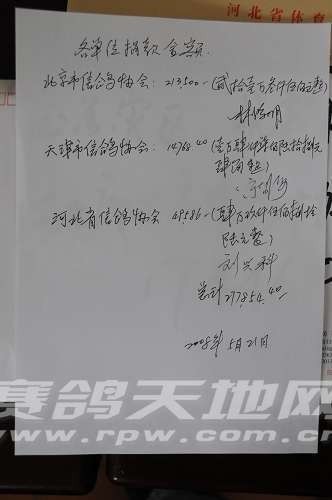 河北省体育
各单位捐款金额:
北京市信鸽协会: 213,500-(贰拾壹万叁仟伍佰元整)
天津市信鸽协会: 14768.40(壹万肆仟柒佰陆拾捌元
肆角整)
河北省信鸽协会 49586-(肆万玖仟伍佰捌拾
陆元整)
刘兴科
总计 277854.40
2008年5月21日
赛鸽天地网
www.rpw.com.cn